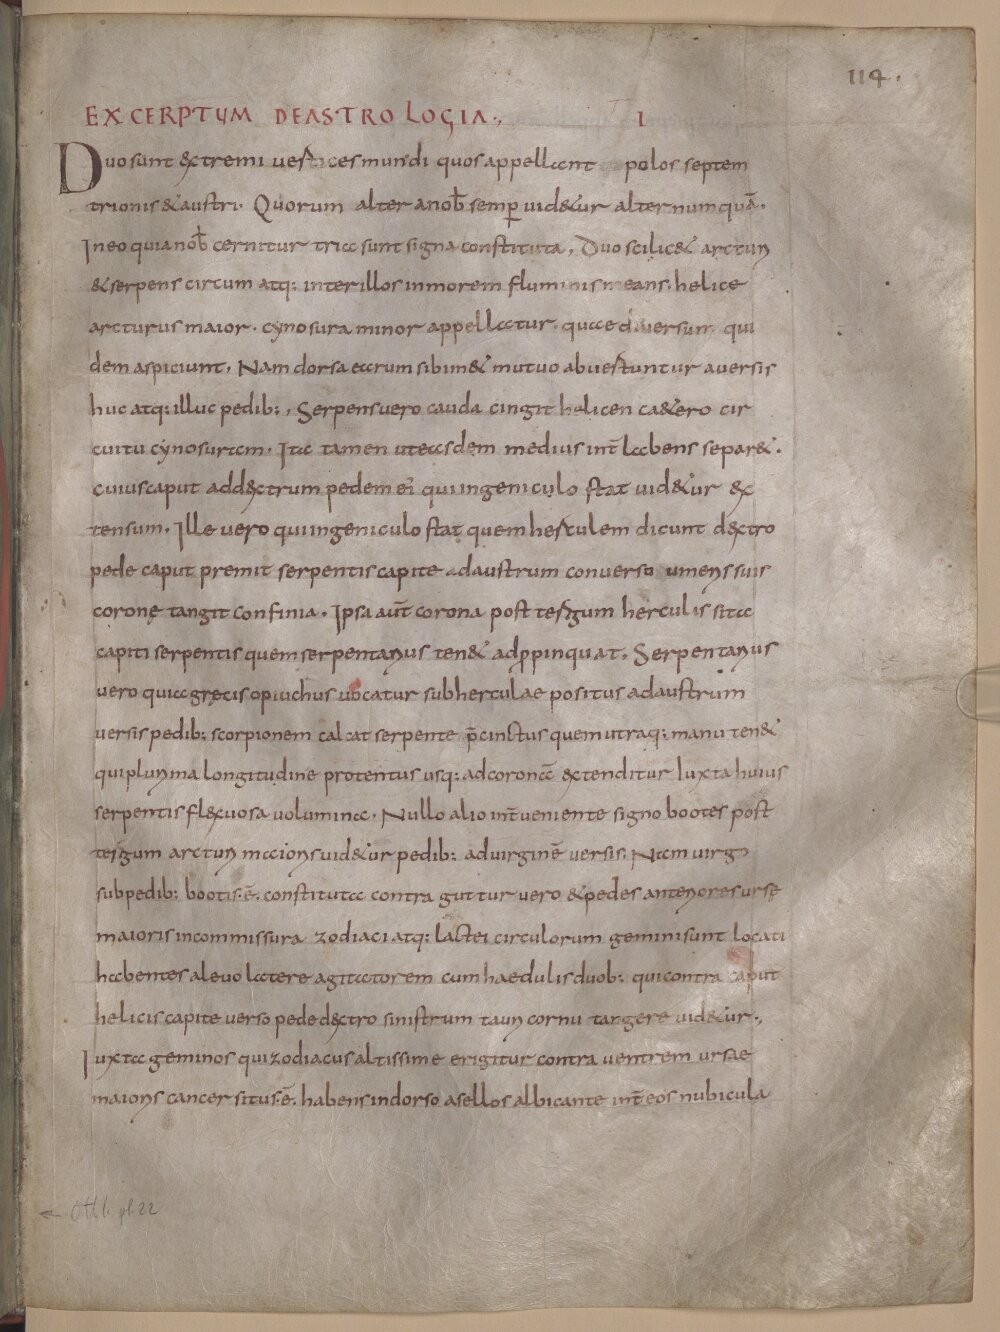 114.
EXCERPTUM DE ASTROLOGIA., I
Duo sunt extremi vertices mundi quos appellant polos septem
trionis & austri. Quorum alter a nob̄ semp̄ uid&ur alter numquā.
In eo qui a nob̄ cernitur tria sunt signa constituta, Duo scilic& arcturi
& serpens circum atq: inter illos in morem fluminis means. helice
arcturus maior. cynosura minor appellatur. quae diversum qui
dem aspiciunt, Nam dorsa earum sibim& mutuo abuertuntur aversis
huc atq: illuc pedib:, Serpens vero cauda cingit helicen ca&ero cir
cuitu cynosuram. Ita tamen ut easdem medius int̄ labens separ&.
cuius caput ad dextrum pedem ei qui in geniculo stat uid&ur ex
tensum. Ille vero qui in geniculo stat quem herculem dicunt dextro
pede caput premit serpentis capite ad austrum converso umeris suis
coronę tangit confinia. Ipsa aut̄ corona post tergum herculis sita
capiti serpentis quem serpentarius ten& adp̄pinquat. Serpentarius
vero qui a gręcis opiuchus uocatur sub herculae positus ad austrum
versis pedib: scorpionem calcat serpente p̄cinctus quem utraq: manu ten&
qui plurima longitudine protentus usq: ad coronā extenditur Iuxta huius
serpentis flexuosa volumina. Nullo alio int̄veniente signo bootes post
tergum arcturi maioris uid&ur pedib: ad virginē versis. Nam virgo
sub pedib: bootis.ē. constituta contra guttur vero & pedes anteriores ursę
maioris in commissura zodiaci atq: lactei circulorum gemini sunt locati
habentes a levo latere agitatorem cum haedulis duob: qui contra caput
helicis capite verso pede dextro sinistrum tauri cornu tangere uid&ur.,
Iuxta geminos qui zodiacus altissime erigitur contra ventrem ursae
maioris cancer situs.ē. habens in dorso asellos albicante int̄ eos nubicula
pl. 22